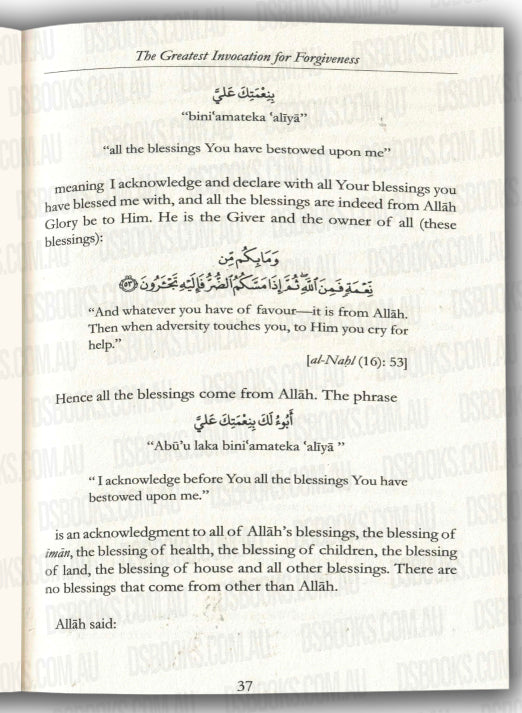 The Greatest Invocation for Forgiveness
بِنِعْمَتِكَ عَلَيَّ
“bini‘amateka ‘alīyā”
“all the blessings You have bestowed upon me”
meaning I acknowledge and declare with all Your blessings you
have blessed me with, and all the blessings are indeed from Allāh
Glory be to Him. He is the Giver and the owner of all (these
blessings):
وَمَابِكُم مِّن
نِّعْمَةٍ فَمِنَ ٱللَّهِ ثُمَّ إِذَا مَسَّكُمُ ٱلضُّرُّ فَإِلَيْهِ تَجْـَٔرُونَ ﴿٥٣﴾
“And whatever you have of favour—it is from Allāh.
Then when adversity touches you, to Him you cry for
help.”
[al-Naḥl (16): 53]
Hence all the blessings come from Allāh. The phrase
أَبُوءُ لَكَ بِنِعْمَتِكَ عَلَيَّ
“Abū’u laka bini‘amateka ‘alīyā ”
“ I acknowledge before You all the blessings You have
bestowed upon me.”
is an acknowledgment to all of Allāh’s blessings, the blessing of
imān, the blessing of health, the blessing of children, the blessing
of land, the blessing of house and all other blessings. There are
no blessings that come from other than Allāh.
Allāh said:
37
DSBOOKS.COM.AU